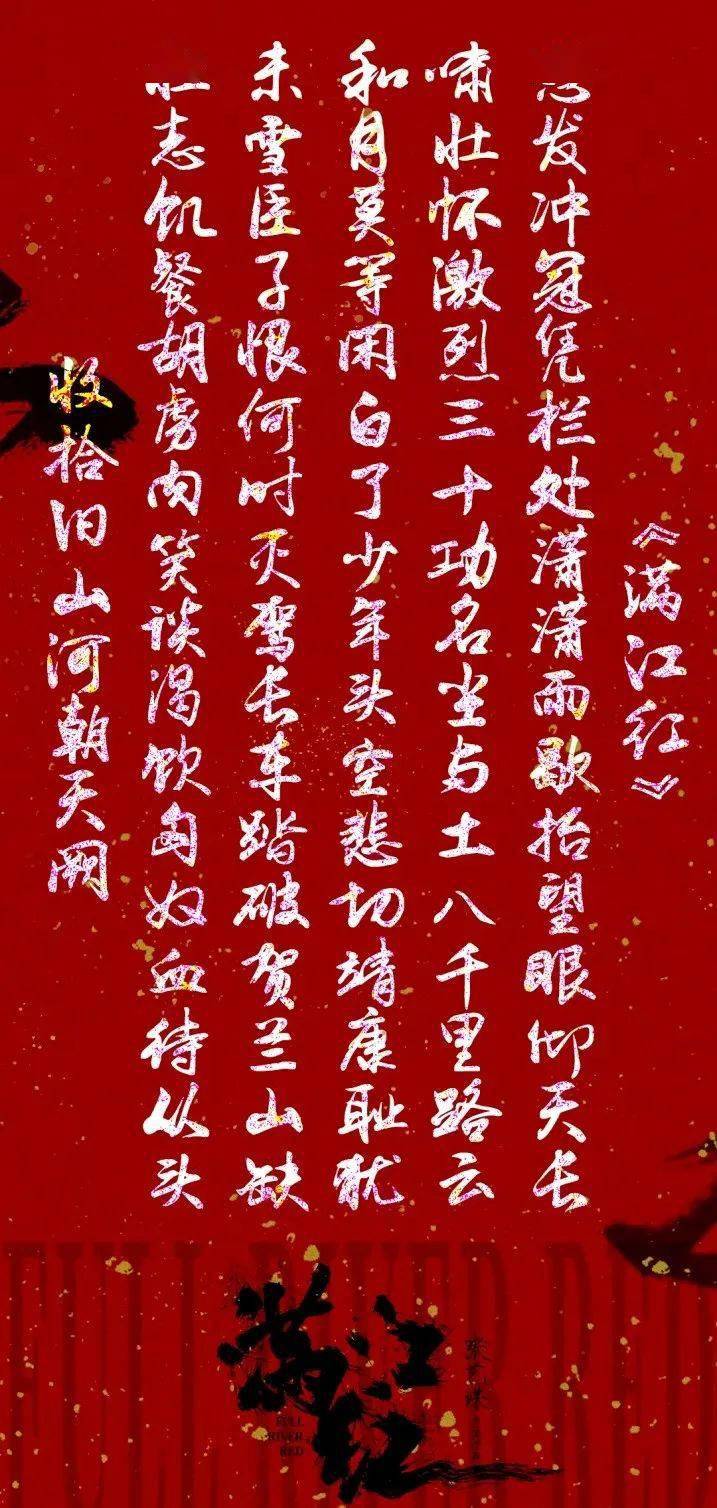 《满江红》
发冲冠凭栏处潇潇雨歇抬望眼仰天长
啸壮怀激烈三十功名尘与土八千里路云
和月莫等闲白了少年头空悲切靖康耻犹
未雪臣子恨何时灭驾长车踏破贺兰山缺
志饥餐胡虏肉笑谈渴饮匈奴血待从头
收拾旧山河朝天阙
FULL RIVER RED
满江红
FULL
RIVER
RED